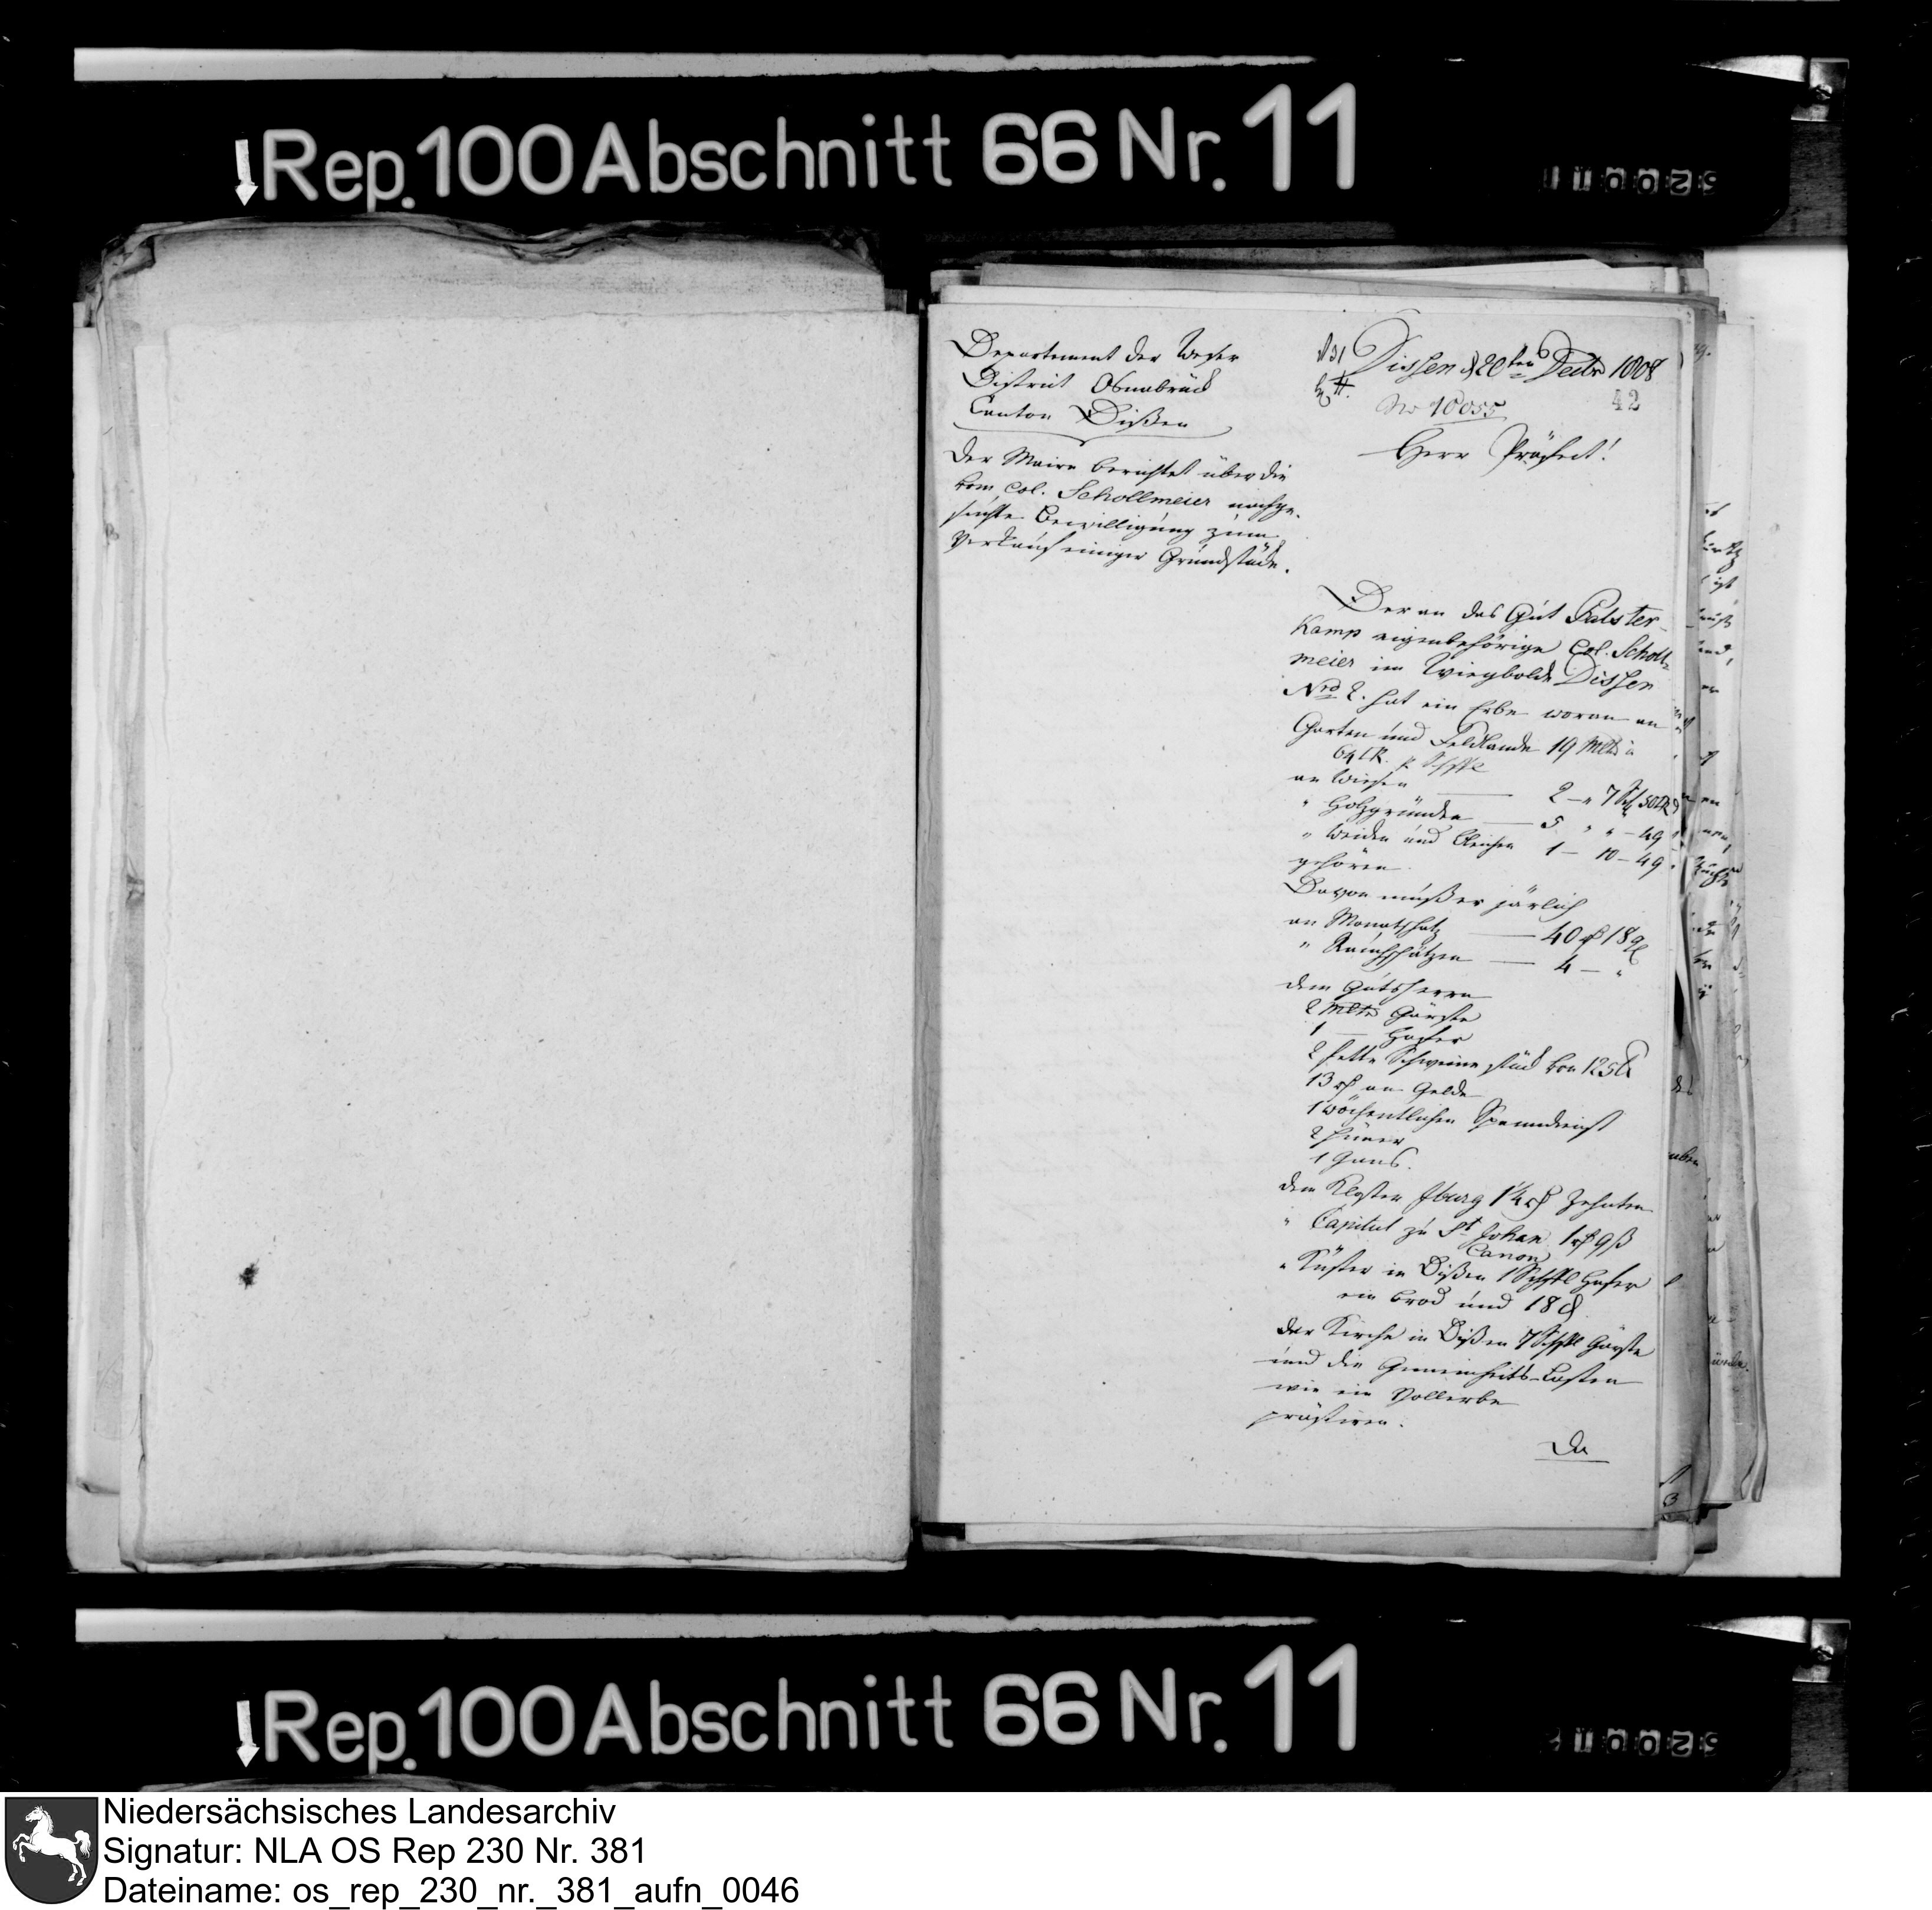 Rep. 100 Abschnitt 66 Nr. 11
Departement der Weser
District Osnabrück
Canton Dißen
Der Maire berichtet über die
vom Col. Schollmeier nachge-
suchte Bewilligung zum
Verkauf einiger Grundstücke.
Dissen d 20ten Decbr 1808
No 10055
42
Herr Präfect!
Der an das Gut Palster-
Kamp eigenbehörige Col. Scholl-
meier im Wiegbolde Dissen
Nro 2. hat ein Erbe woran an
Garten und Feldlande 19 Mltr
an Wiesen — 2 — 7
" Holzgründen — 5 " " — 49
" Weiden und Bleichen 1 — 10 — 49
gehören.
Davon muß er järlich
an Monatschatz — 40 18
" Rauchschätzen — 4 — "
dem Gutsherrn
2 Mltr Gärste
1 — Hafer
2 fette Schweine stück von 125 ℔
13 rh an Gelde
1 wöchentlichen Spanndienst
2 Hüner
1 Gans.
dem Kloster Iburg 14 rh Zehnten
" Capitul zu St Johan 1 rh 9 ß
Canon
" Küster in Dißen 1 Schffl Hafer
ein Brod und 18 d
der Kirche in Dißen 7 Schffl Gärste
und die Gemeinheits-Lasten
wie ein Vollerbe
prästiren.
Da
Rep. 100 Abschnitt 66 Nr. 11
Niedersächsisches Landesarchiv
Signatur: NLA OS Rep 230 Nr. 381
Dateiname: os_rep_230_nr._381_aufn_0046